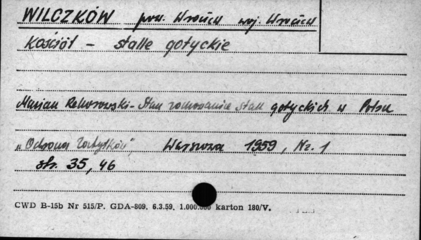 WILCZKÓW pow. Wrocław woj. Wrocław
Kościół – stalle gotyckie
Marian Kornecki - Stan zachowania stall gotyckich w Polsce
„Ochrona Zabytków", Warszawa 1959, Nr. 1
str. 35, 46
CWD B-15b Nr 515/P. GDA-809. 6.3.59. 1.000.000 karton 180/V.